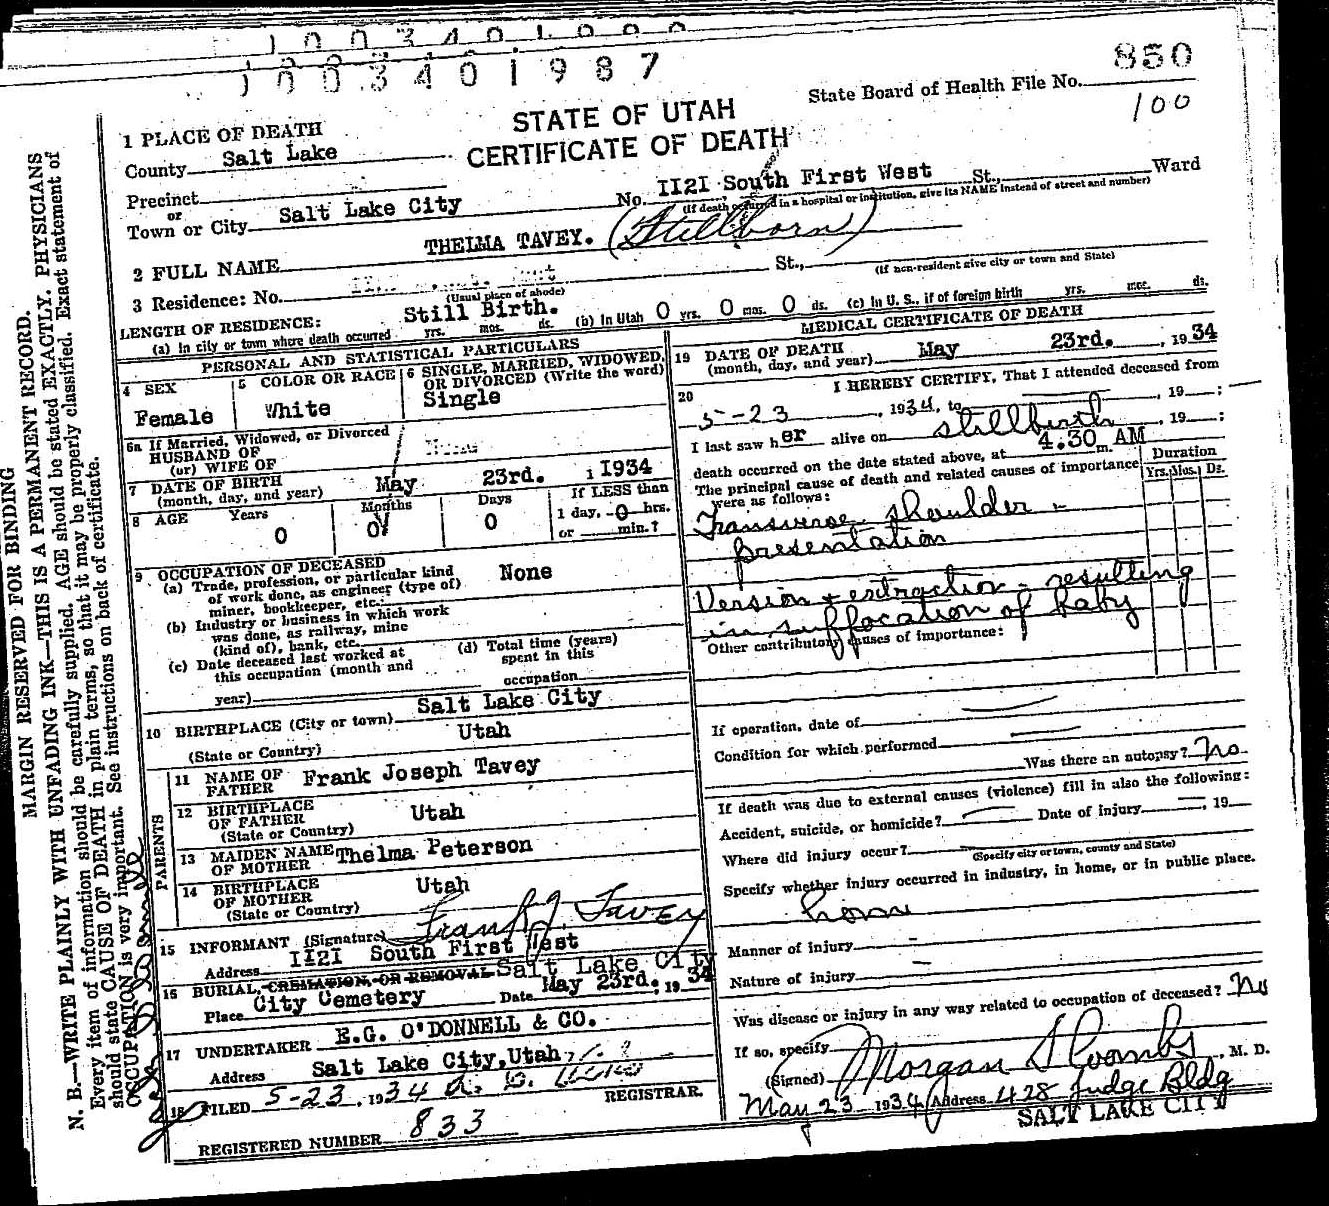 1003401987
850
State Board of Health File No.
100
STATE OF UTAH
CERTIFICATE OF DEATH
1 PLACE OF DEATH
County Salt Lake
Precinct
or
Town or City Salt Lake City
No. II2I South First West St., Ward
(If death occurred in a hospital or institution, give its NAME instead of street and number)
2 FULL NAME THELMA TAVEY. (Stillborn)
3 Residence: No. St.,
(Usual place of abode)
(If non-resident give city or town and State)
LENGTH OF RESIDENCE: Still Birth.
(a) In city or town where death occurred yrs. mos. ds. (b) In Utah 0 yrs. 0 mos. 0 ds. (c) In U. S., if of foreign birth yrs. mos. ds.
PERSONAL AND STATISTICAL PARTICULARS
4 SEX
Female
5 COLOR OR RACE
White
6 SINGLE, MARRIED, WIDOWED, OR DIVORCED (Write the word)
Single
6a If Married, Widowed, or Divorced
HUSBAND OF
(or) WIFE OF
7 DATE OF BIRTH
(month, day, and year) May 23rd. 1934
8 AGE Years Months Days If LESS than
0 0 0 1 day, -0- hrs.
or min.?
9 OCCUPATION OF DECEASED
(a) Trade, profession, or particular kind of work done, as engineer (type of) miner, bookkeeper, etc. None
(b) Industry or business in which work was done, as railway, mine (kind of), bank, etc.
(c) Date deceased last worked at this occupation (month and year)
(d) Total time (years) spent in this occupation
10 BIRTHPLACE (City or town) Salt Lake City
(State or Country) Utah
PARENTS
11 NAME OF FATHER Frank Joseph Tavey
12 BIRTHPLACE OF FATHER (State or Country) Utah
13 MAIDEN NAME OF MOTHER Thelma Peterson
14 BIRTHPLACE OF MOTHER (State or Country) Utah
15 INFORMANT (Signature) Frank J. Tavey
Address II2I South First West
Salt Lake City
16 BURIAL, CREMATION, OR REMOVAL
Place City Cemetery Date May 23rd. 1934
17 UNDERTAKER E.G. O'DONNELL & CO.
Address Salt Lake City, Utah
18 FILED 5-23, 1934
REGISTRAR.
REGISTERED NUMBER 833
MEDICAL CERTIFICATE OF DEATH
19 DATE OF DEATH
(month, day, and year) May 23rd., 1934
20 I HEREBY CERTIFY, That I attended deceased from
5-23, 1934, to , 19 ;
I last saw her alive on stillbirth, 19 ;
death occurred on the date stated above, at 4.30 AM m.
The principal cause of death and related causes of importance were as follows:
Duration
Yrs. Mos. Ds.
Transverse shoulder -
presentation
Version & extraction - resulting
in suffocation of baby
Other contributory causes of importance:
If operation, date of
Condition for which performed
Was there an autopsy? No
If death was due to external causes (violence) fill in also the following:
Accident, suicide, or homicide? Date of injury , 19
Where did injury occur?
(Specify city or town, county and State)
Specify whether injury occurred in industry, in home, or in public place.
home
Manner of injury
Nature of injury
Was disease or injury in any way related to occupation of deceased? No
If so, specify
(Signed) Morgan S Coombs, M. D.
May 23 1934 Address 428 Judge Bldg
SALT LAKE CITY
MARGIN RESERVED FOR BINDING
N. B.—WRITE PLAINLY WITH UNFADING INK—THIS IS A PERMANENT RECORD.
Every item of information should be carefully supplied. AGE should be stated EXACTLY. PHYSICIANS
should state CAUSE OF DEATH in plain terms, so that it may be properly classified. Exact statement of
OCCUPATION is very important. See instructions on back of certificate.